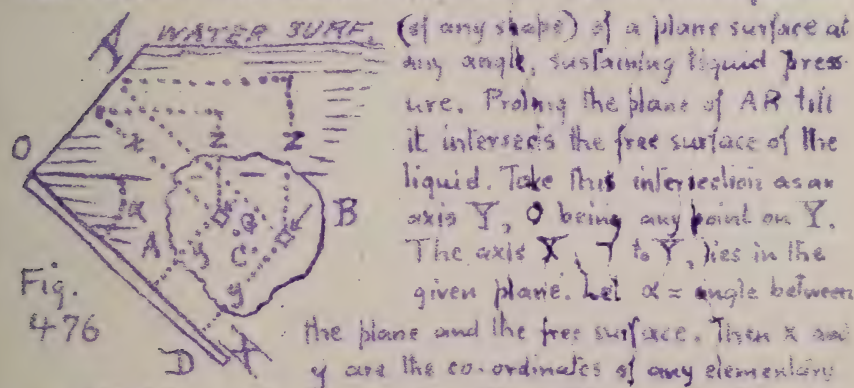 WATER SURF. (of any shape) of a plane surface at
any angle, sustaining liquid press-
ure. Prolong the plane of AB till
it intersects the free surface of the
liquid. Take this intersection as an
axis Y, O being any point on Y.
The axis X, ⊤ to Y, lies in the
given plane. Let α = angle between
the plane and the free surface. Then x and
y are the co-ordinates of any elementary
Y
x
z
z
O
α
A
G
C
B
y
y
D
X
Fig.
476